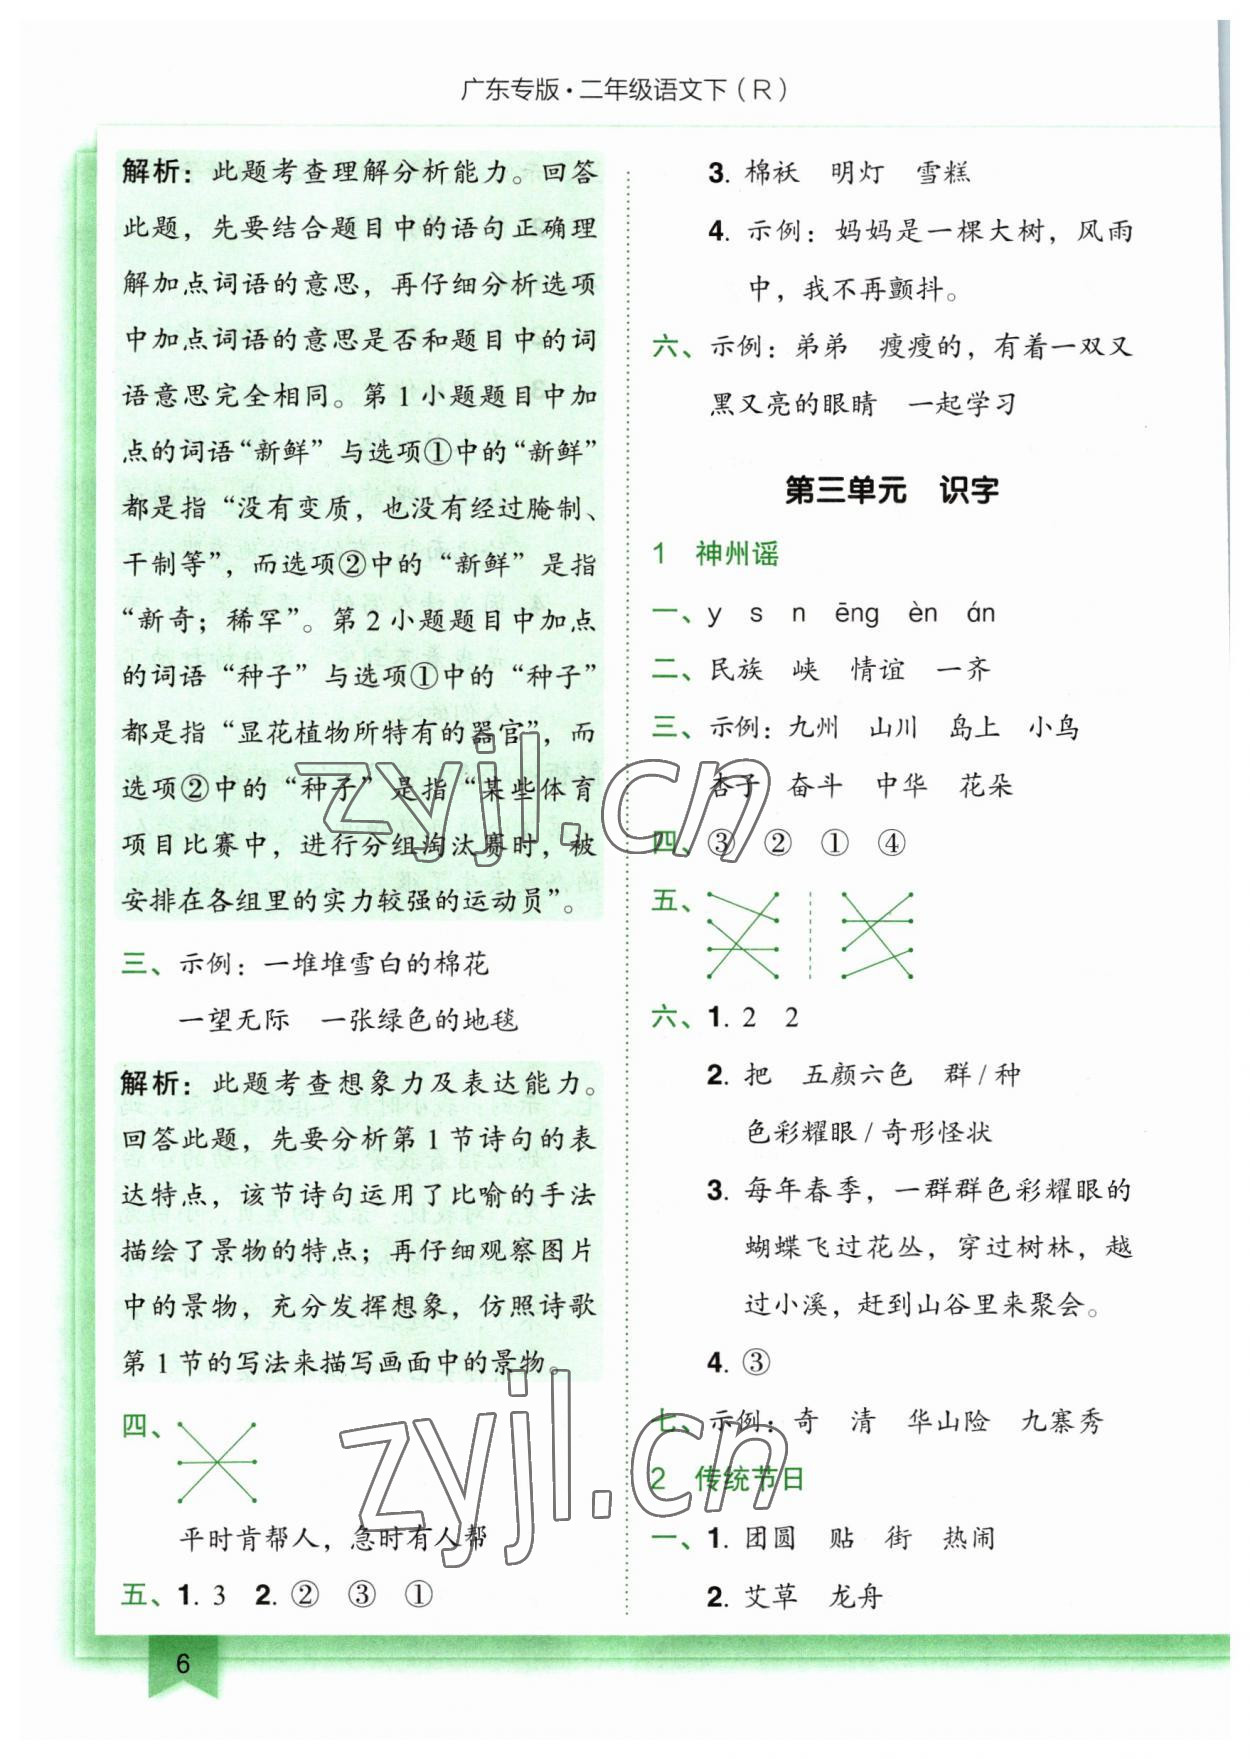 广东专版·二年级语文下(R)
解析：此题考查理解分析能力。回答
此题，先要结合题目中的语句正确理
解加点词语的意思，再仔细分析选项
中加点词语的意思是否和题目中的词
语意思完全相同。第1小题题目中加
点的词语“新鲜”与选项①中的“新鲜”
都是指“没有变质，也没有经过腌制、
干制等”，而选项②中的“新鲜”是指
“新奇；稀罕”。第2小题题目中加点
的词语“种子”与选项①中的“种子”
都是指“显花植物所特有的器官”，而
选项②中的“种子”是指“某些体育
项目比赛中，进行分组淘汰赛时，被
安排在各组里的实力较强的运动员”。
三、示例：一堆堆雪白的棉花
一望无际 一张绿色的地毯
解析：此题考查想象力及表达能力。
回答此题，先要分析第1节诗句的表
达特点，该节诗句运用了比喻的手法
描绘了景物的特点；再仔细观察图片
中的景物，充分发挥想象，仿照诗歌
第1节的写法来描写画面中的景物。
四、
平时肯帮人，急时有人帮
五、1. 3 2. ② ③ ①
3. 棉袄 明灯 雪糕
4. 示例：妈妈是一棵大树，风雨
中，我不再颤抖。
六、示例：弟弟 瘦瘦的，有着一双又
黑又亮的眼睛 一起学习
第三单元 识字
1 神州谣
一、y s n ēng èn án
二、民族 峡 情谊 一齐
三、示例：九州 山川 岛上 小鸟
杏子 奋斗 中华 花朵
四、③ ② ① ④
五、
六、1. 2 2
2. 把 五颜六色 群/种
色彩耀眼/奇形怪状
3. 每年春季，一群群色彩耀眼的
蝴蝶飞过花丛，穿过树林，越
过小溪，赶到山谷里来聚会。
4. ③
七、示例：奇 清 华山险 九寨秀
2 传统节日
一、1. 团圆 贴 街 热闹
2. 艾草 龙舟
6
zyjl.cn
zyjl.cn